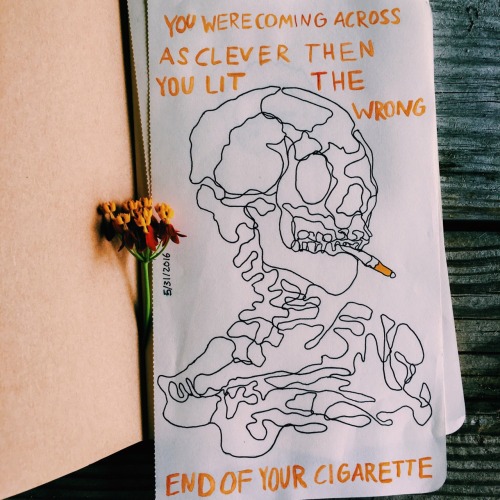 YOU WERE COMING ACROSS
AS CLEVER THEN
YOU LIT THE
WRONG
5/31/2016
END OF YOUR CIGARETTE